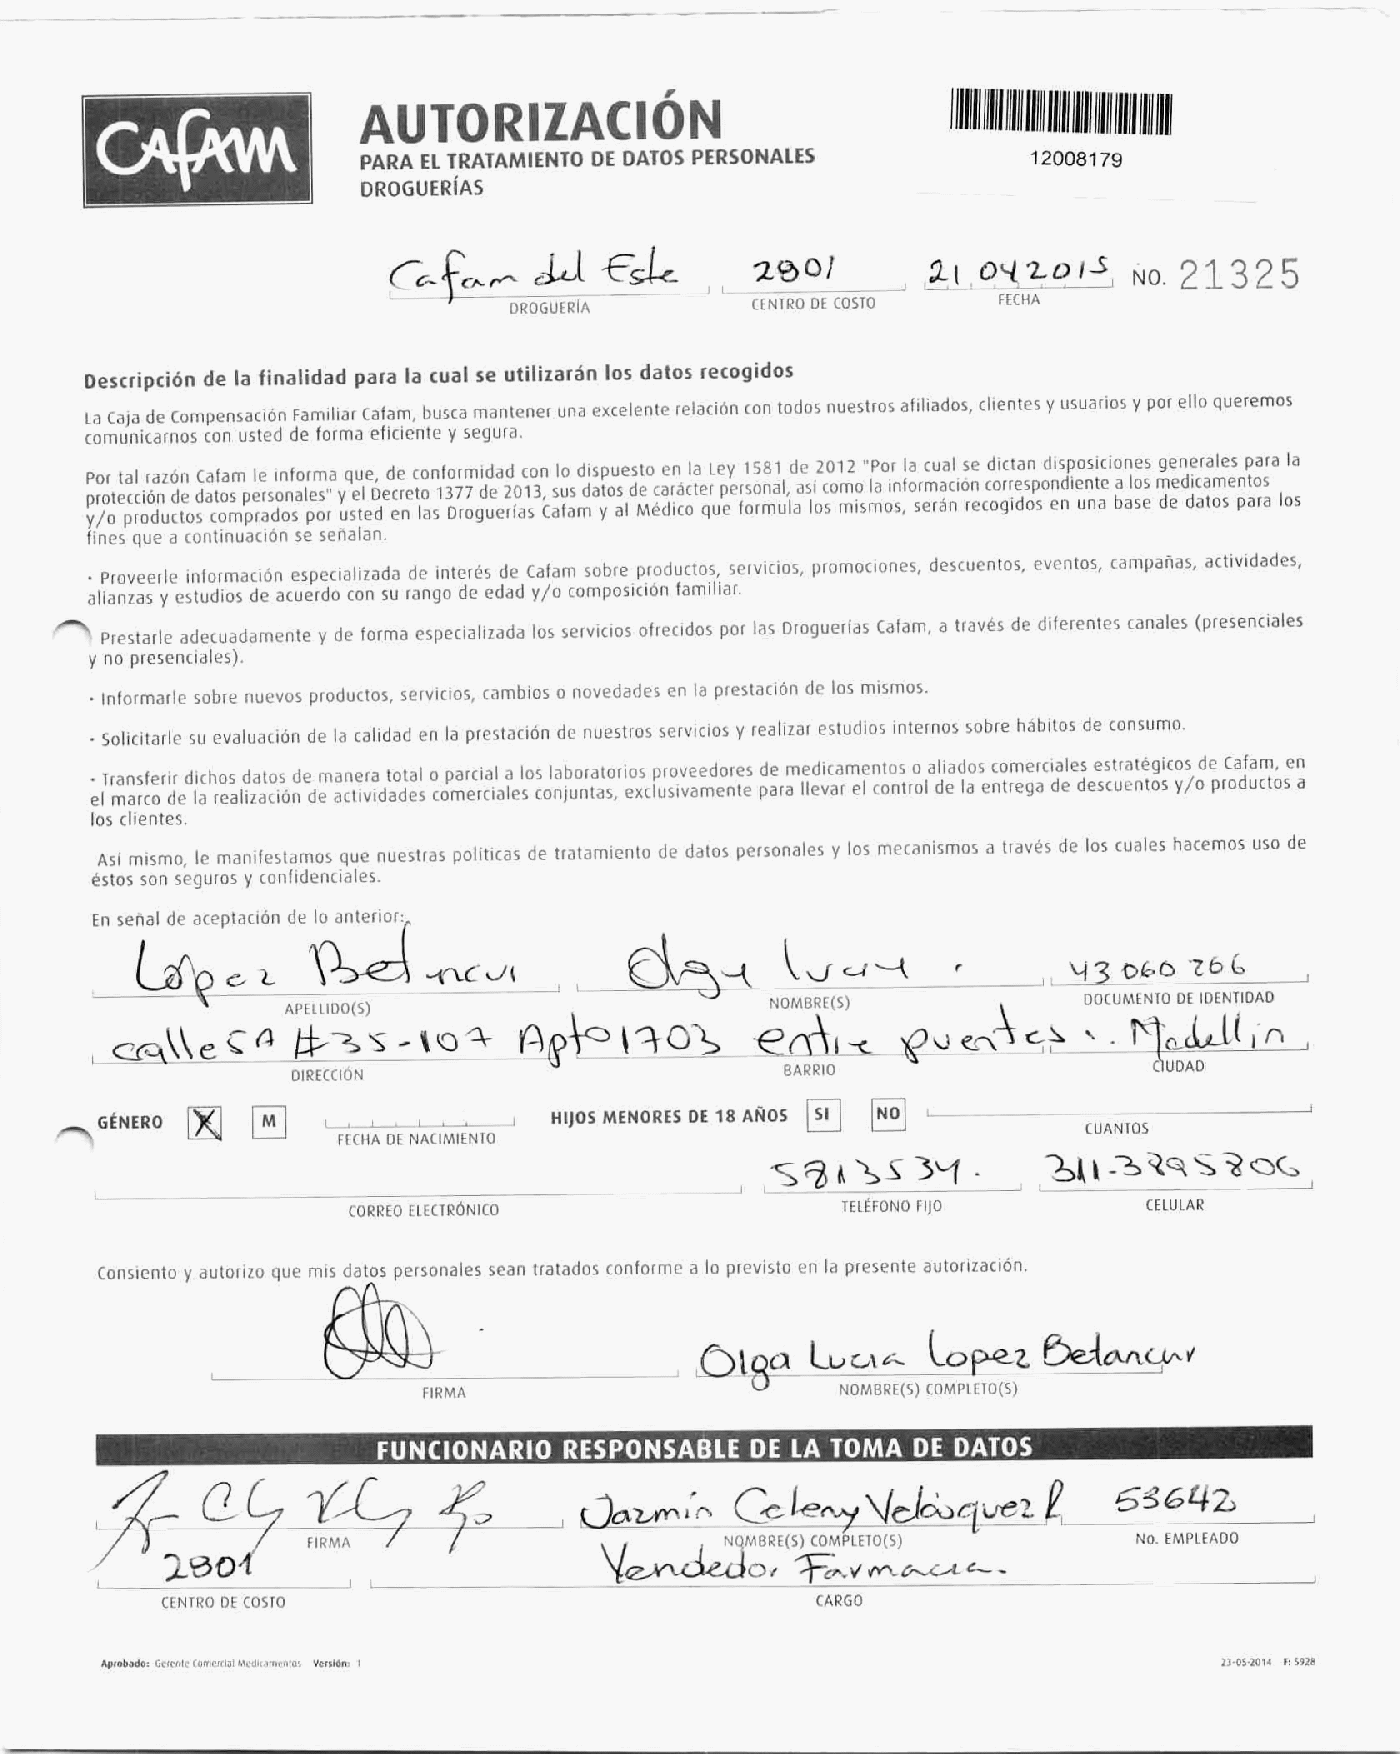 CAFAM
AUTORIZACIÓN
PARA EL TRATAMIENTO DE DATOS PERSONALES
DROGUERÍAS
12008179
Cafam del Este 2801 21 04 2015 NO. 21325
DROGUERÍA CENTRO DE COSTO FECHA
Descripción de la finalidad para la cual se utilizarán los datos recogidos
La Caja de Compensación Familiar Cafam, busca mantener una excelente relación con todos nuestros afiliados, clientes y usuarios y por ello queremos
comunicarnos con usted de forma eficiente y segura.
Por tal razón Cafam le informa que, de conformidad con lo dispuesto en la Ley 1581 de 2012 "Por la cual se dictan disposiciones generales para la
protección de datos personales" y el Decreto 1377 de 2013, sus datos de carácter personal, así como la información correspondiente a los medicamentos
y/o productos comprados por usted en las Droguerías Cafam y al Médico que formula los mismos, serán recogidos en una base de datos para los
fines que a continuación se señalan.
· Proveerle información especializada de interés de Cafam sobre productos, servicios, promociones, descuentos, eventos, campañas, actividades,
alianzas y estudios de acuerdo con su rango de edad y/o composición familiar.
Prestarle adecuadamente y de forma especializada los servicios ofrecidos por las Droguerías Cafam, a través de diferentes canales (presenciales
y no presenciales).
· Informarle sobre nuevos productos, servicios, cambios o novedades en la prestación de los mismos.
· Solicitarle su evaluación de la calidad en la prestación de nuestros servicios y realizar estudios internos sobre hábitos de consumo.
· Transferir dichos datos de manera total o parcial a los laboratorios proveedores de medicamentos o aliados comerciales estratégicos de Cafam, en
el marco de la realización de actividades comerciales conjuntas, exclusivamente para llevar el control de la entrega de descuentos y/o productos a
los clientes.
Así mismo, le manifestamos que nuestras políticas de tratamiento de datos personales y los mecanismos a través de los cuales hacemos uso de
éstos son seguros y confidenciales.
En señal de aceptación de lo anterior:
López Betancur Olga Lucia. 43 060 266
APELLIDO(S) NOMBRE(S) DOCUMENTO DE IDENTIDAD
calle 5A #35-107 Apto 1703 entre puentes. Medellin
DIRECCIÓN BARRIO CIUDAD
GÉNERO X M HIJOS MENORES DE 18 AÑOS SI NO
FECHA DE NACIMIENTO CUANTOS
5813534. 311-3895806
CORREO ELECTRÓNICO TELÉFONO FIJO CELULAR
Consiento y autorizo que mis datos personales sean tratados conforme a lo previsto en la presente autorización.
Olga Lucia Lopez Betancur
FIRMA NOMBRE(S) COMPLETO(S)
FUNCIONARIO RESPONSABLE DE LA TOMA DE DATOS
Jazmín Celeny Velásquez R 53642
FIRMA NOMBRE(S) COMPLETO(S) No. EMPLEADO
2801 Vendedor Farmacia.
CENTRO DE COSTO CARGO
Aprobado: Gerente Comercial Medicamentos Versión: 1 23-05-2014 F: 5928